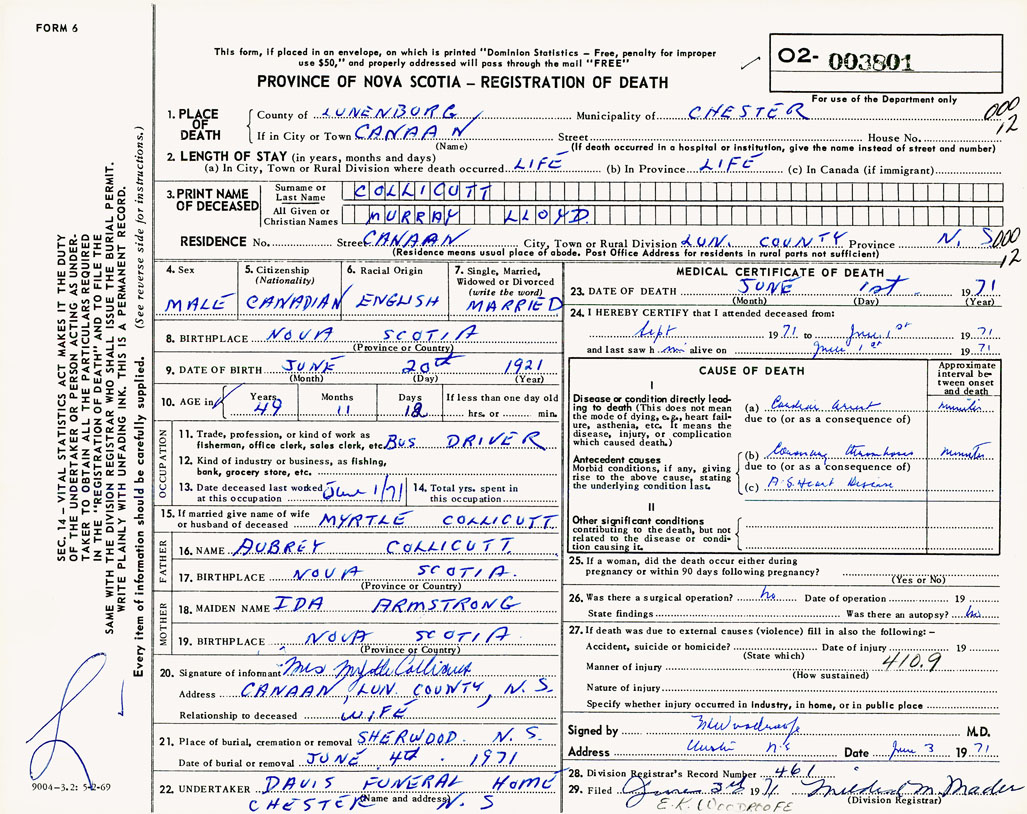 FORM 6
This form, if placed in an envelope, on which is printed "Dominion Statistics – Free, penalty for improper
use $50," and properly addressed will pass through the mail "FREE"
PROVINCE OF NOVA SCOTIA – REGISTRATION OF DEATH
O2- 003801
For use of the Department only
000
12
1. PLACE OF DEATH
County of LUNENBURG Municipality of CHESTER
If in City or Town CANAAN Street House No.
(Name) (If death occurred in a hospital or institution, give the name instead of street and number)
2. LENGTH OF STAY (in years, months and days)
(a) In City, Town or Rural Division where death occurred LIFE (b) In Province LIFE (c) In Canada (if immigrant)
3. PRINT NAME OF DECEASED
Surname or Last Name COLLICUTT
All Given or Christian Names MURRAY LLOYD
RESIDENCE No. Street CANAAN City, Town or Rural Division LUN. COUNTY Province N. S.
000
12
(Residence means usual place of abode. Post Office Address for residents in rural parts not sufficient)
4. Sex
MALE
5. Citizenship
(Nationality)
CANADIAN
6. Racial Origin
ENGLISH
7. Single, Married,
Widowed or Divorced
(write the word)
MARRIED
8. BIRTHPLACE NOVA SCOTIA
(Province or Country)
9. DATE OF BIRTH JUNE 20th 1921
(Month) (Day) (Year)
10. AGE in Years Months Days If less than one day old
49 11 12 hrs. or min.
OCCUPATION
11. Trade, profession, or kind of work as
fisherman, office clerk, sales clerk, etc. BUS DRIVER
12. Kind of industry or business, as fishing,
bank, grocery store, etc.
13. Date deceased last worked
at this occupation June 1/71
14. Total yrs. spent in
this occupation
15. If married give name of wife
or husband of deceased MYRTLE COLLICUTT
FATHER
16. NAME AUBREY COLLICUTT
17. BIRTHPLACE NOVA SCOTIA.
(Province or Country)
MOTHER
18. MAIDEN NAME IDA ARMSTRONG
19. BIRTHPLACE NOVA SCOTIA
(Province or Country)
20. Signature of informant Mrs Myrtle Collicutt
Address CANAAN, LUN. COUNTY, N. S.
Relationship to deceased WIFE
21. Place of burial, cremation or removal SHERWOOD. N. S.
Date of burial or removal JUNE 4th. 1971
22. UNDERTAKER DAVIS FUNERAL HOME
(Name and address)
CHESTER N. S
MEDICAL CERTIFICATE OF DEATH
23. DATE OF DEATH JUNE 1st. 1971
(Month) (Day) (Year)
24. I HEREBY CERTIFY that I attended deceased from:
Sept 1971 to June 1st 1971
and last saw him alive on June 1st 1971
CAUSE OF DEATH
Approximate
interval be-
tween onset
and death
I
Disease or condition directly lead-
ing to death (This does not mean
the mode of dying, e.g., heart fail-
ure, asthenia, etc. It means the
disease, injury, or complication
which caused death.)
(a) Cardiac arrest minutes
due to (or as a consequence of)
Antecedent causes
Morbid conditions, if any, giving
rise to the above cause, stating
the underlying condition last.
(b) Coronary thrombosis minutes
due to (or as a consequence of)
(c) A.S. Heart Disease
II
Other significant conditions
contributing to the death, but not
related to the disease or condi-
tion causing it.
25. If a woman, did the death occur either during
pregnancy or within 90 days following pregnancy?
(Yes or No)
26. Was there a surgical operation? no Date of operation 19
State findings Was there an autopsy? no
27. If death was due to external causes (violence) fill in also the following: –
Accident, suicide or homicide? Date of injury 19
(State which)
410.9
Manner of injury
(How sustained)
Nature of injury
Specify whether injury occurred in industry, in home, or in public place
Signed by M.D.
Address N.S Date June 3 1971
28. Division Registrar's Record Number 461
29. Filed June 3rd 1971 Mildred M. Mader
(Division Registrar)
E.K. WOODROOFE
SEC. 14 – VITAL STATISTICS ACT MAKES IT THE DUTY
OF THE UNDERTAKER OR PERSON ACTING AS UNDER-
TAKER TO OBTAIN ALL THE PARTICULARS REQUIRED
IN THE "REGISTRATION OF DEATH" AND TO FILE THE
SAME WITH THE DIVISION REGISTRAR WHO SHALL ISSUE THE BURIAL PERMIT.
WRITE PLAINLY WITH UNFADING INK. THIS IS A PERMANENT RECORD.
Every item of information should be carefully supplied. (See reverse side for instructions.)
9004-3.2: 5-2-69